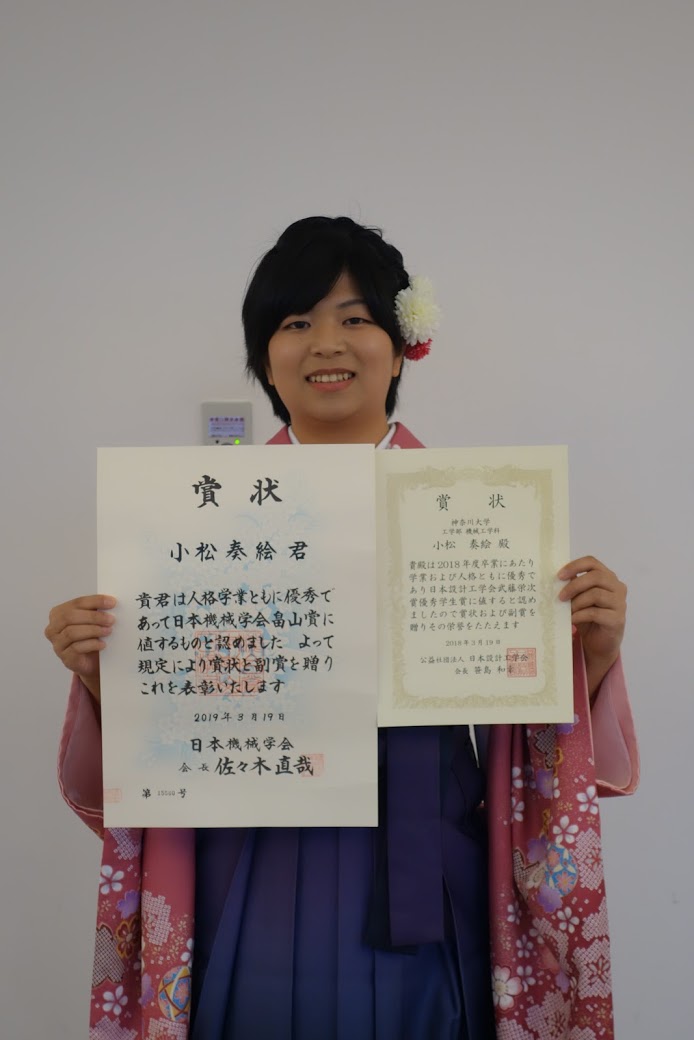 賞状
小松奏絵 君
貴君は人格学業ともに優秀で
あって日本機械学会畠山賞に
値するものと認めました よって
規定により賞状と副賞を贈り
これを表彰いたします
2019年3月19日
日本機械学会
会長 佐々木直哉
第 号
賞状
神奈川大学
工学部 機械工学科
小松 奏絵 殿
貴殿は2018年度卒業にあたり
学業および人格ともに優秀で
あり日本設計工学会武藤栄次
賞優秀学生賞に値すると認め
ましたので賞状および副賞を
贈りその栄誉をたたえます
年3月19日
公益社団法人 日本設計工学会
会長 笹島 和幸